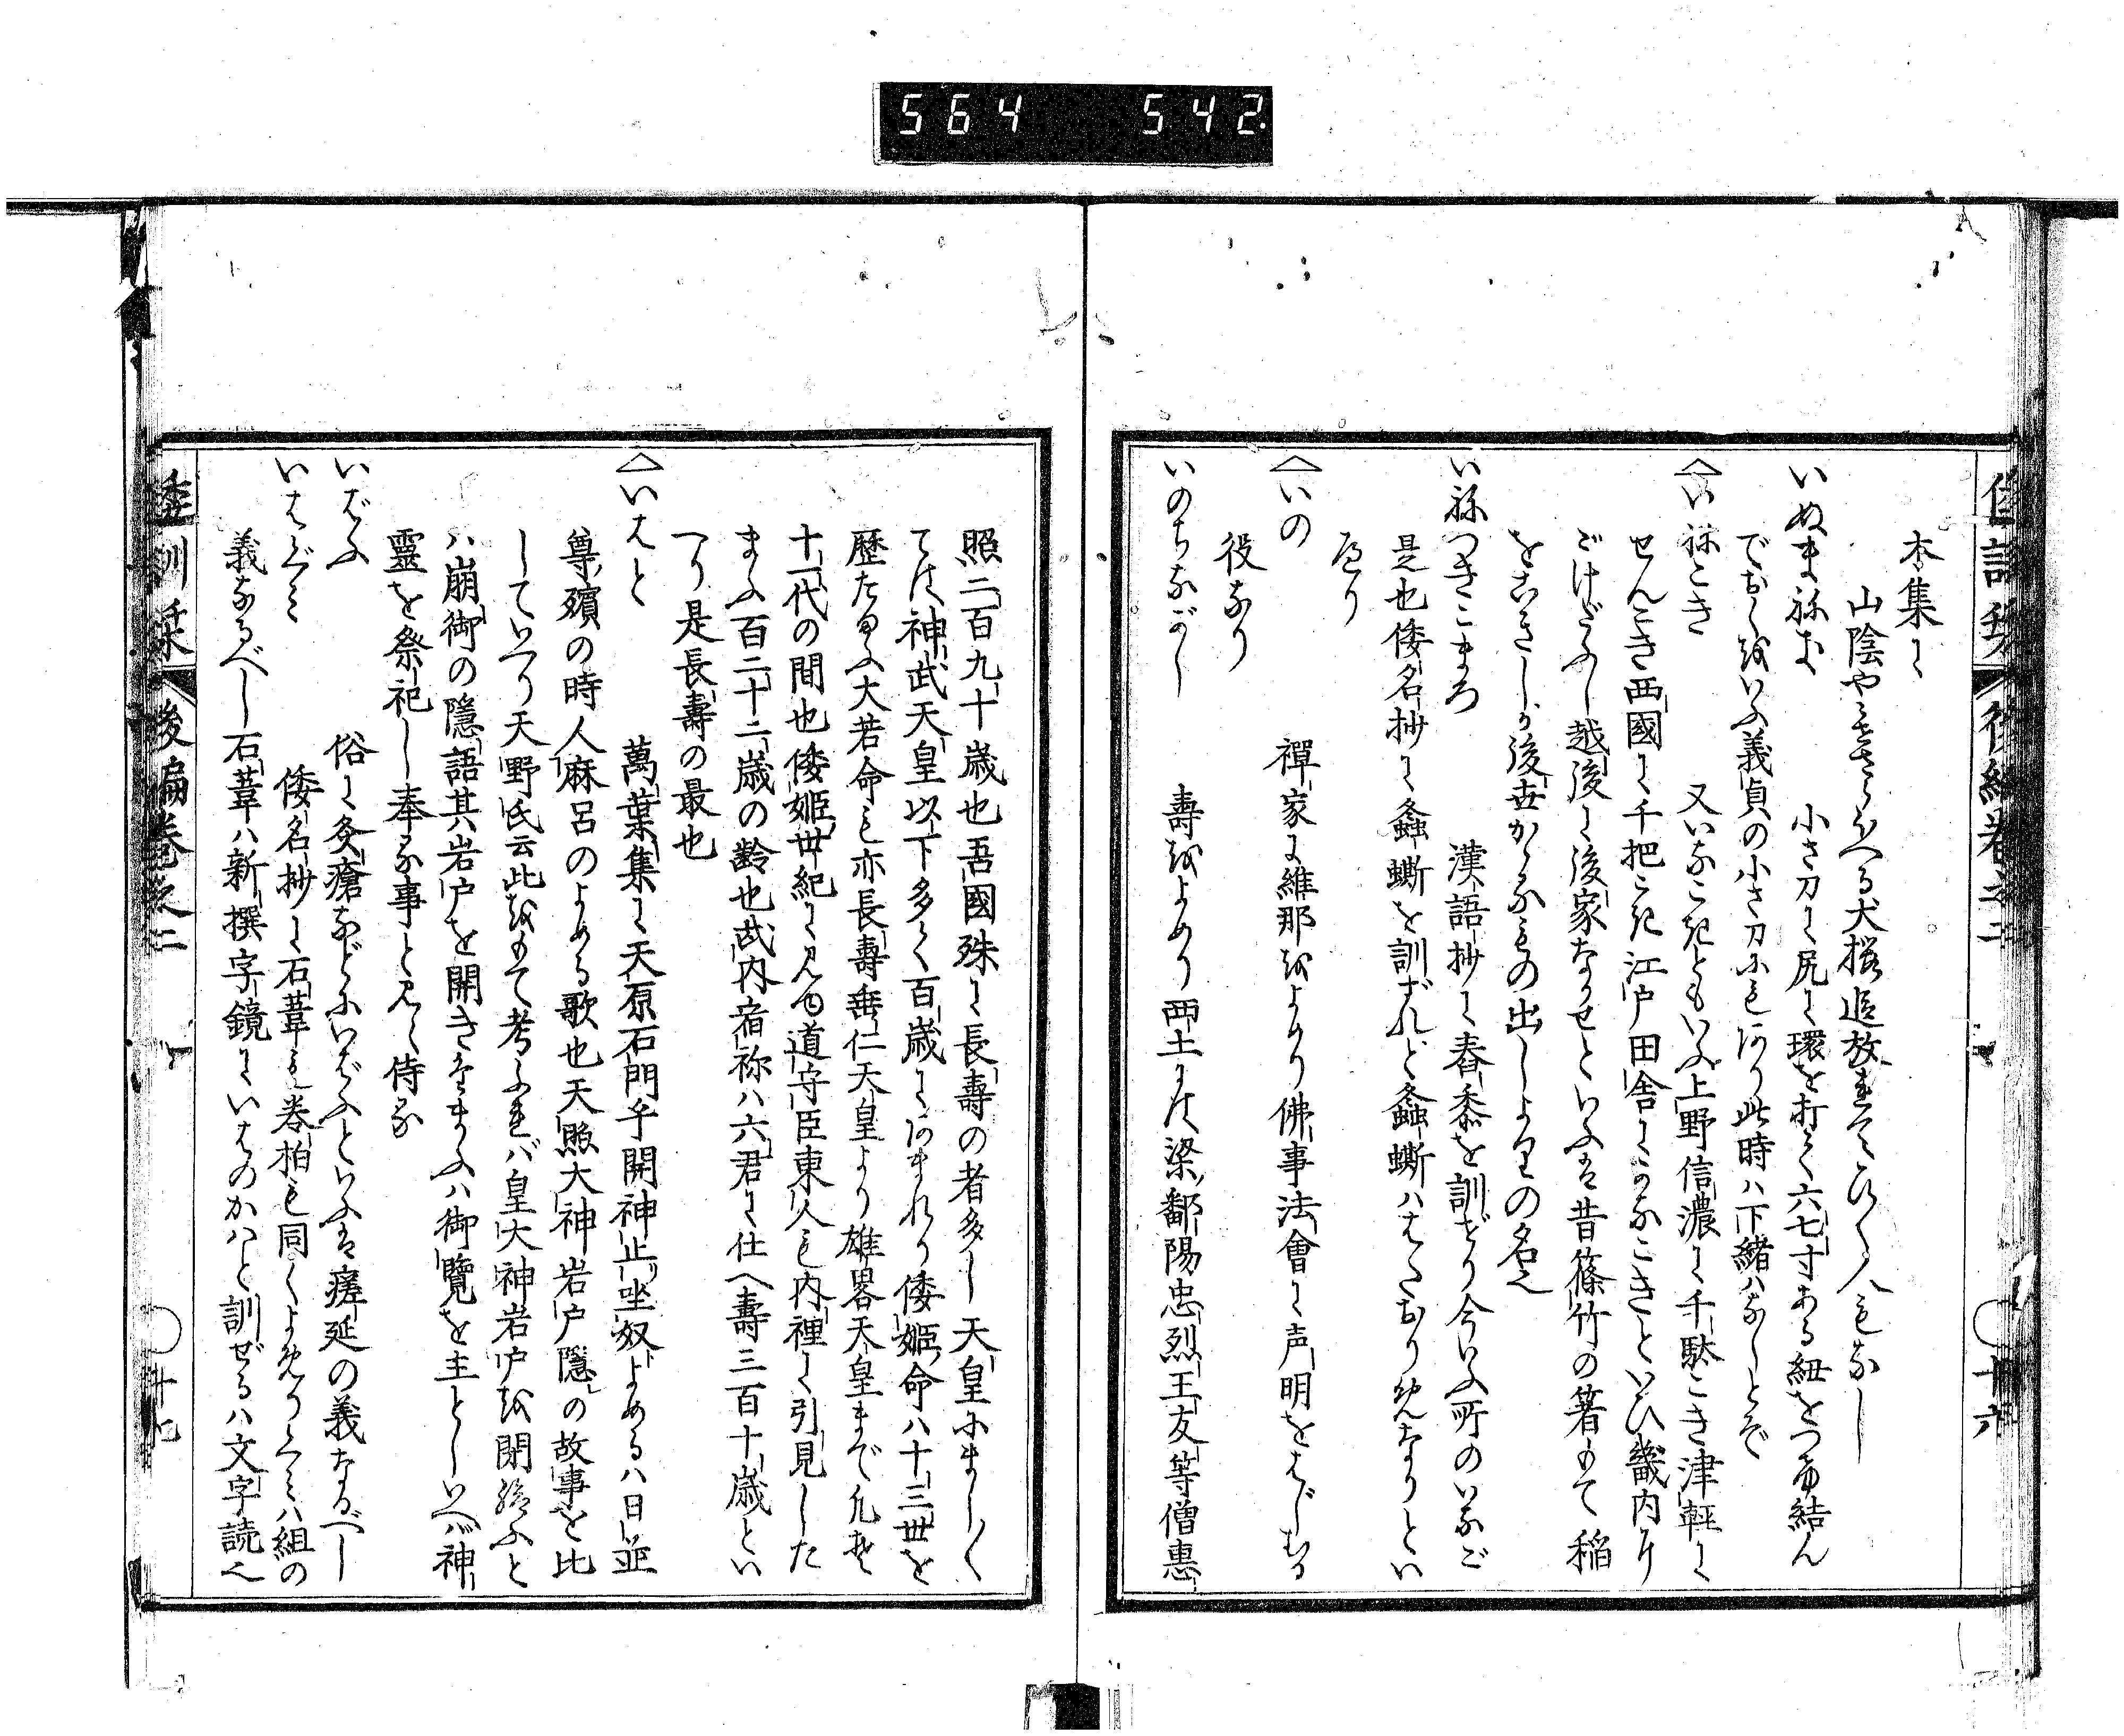 564 542
本集に
山陰やミきらへる犬桜追放たれてひく人もなし
いぬまねき 小さ刀に尻に環を打て六七寸ある紐をつけ結ん
でおくをいふ義貞の小さ刀にもあり此時ハ下緒ハなしとぞ
いねこき 又いなこきともいふ上野信濃に千駄こき津軽に
せんこき西國に千把こき江戸田舎にかなこきといひ畿内に
ごけだふし越後に後家なかせといふは昔篠竹の箸もて稲
をこきしか後世かゝるもの出しよりの名也
いねつきこまろ 漢語抄に舂黍を訓ぜり今いふ所のいなご
是也倭名抄に螽蟖を訓ずれど螽蟖ハはたおりめなりとい
へり
いの 禪家に維那をよめり佛事法會に声明をはじむる
役なり
いのちながし 壽をよめり西土には梁鄱陽忠烈王友等僧惠
照二百九十歳也吾國殊に長壽の者多し天皇にまし〳〵
ては神武天皇以下多く百歳にあまれり倭姫命ハ十三世を
歴たまふ大若命も亦長壽垂仁天皇より雄畧天皇まで凡そ
十一代の間也倭姫世紀に見ゆ道守臣東人も内裡に引見した
まふ百二十二歳の齢也武内宿祢ハ六君に仕へ壽三百十歳とい
へり是長壽の最也
いはと 萬葉集に天原石門乎開神上坐奴よめるハ日並
尊殯の時人麻呂のよめる歌也天照大神岩戸隱の故事を比
していへり天野氏云此をもて考ふれバ皇大神岩戸を閉給ふと
ハ崩御の隱語其岩戸を開きたまふハ御覽を主としいへバ神
靈を祭祀し奉る事と見え侍る
いばふ 俗に灸瘡などにいばふといふは瘥延の義なるべし
いはぐミ 倭名抄に石葦も巻柏も同くよめりくミハ組の
義なるべし石葦ハ新撰字鏡にいはのかハと訓ぜるハ文字読也
倭訓栞 後編巻之二 十七